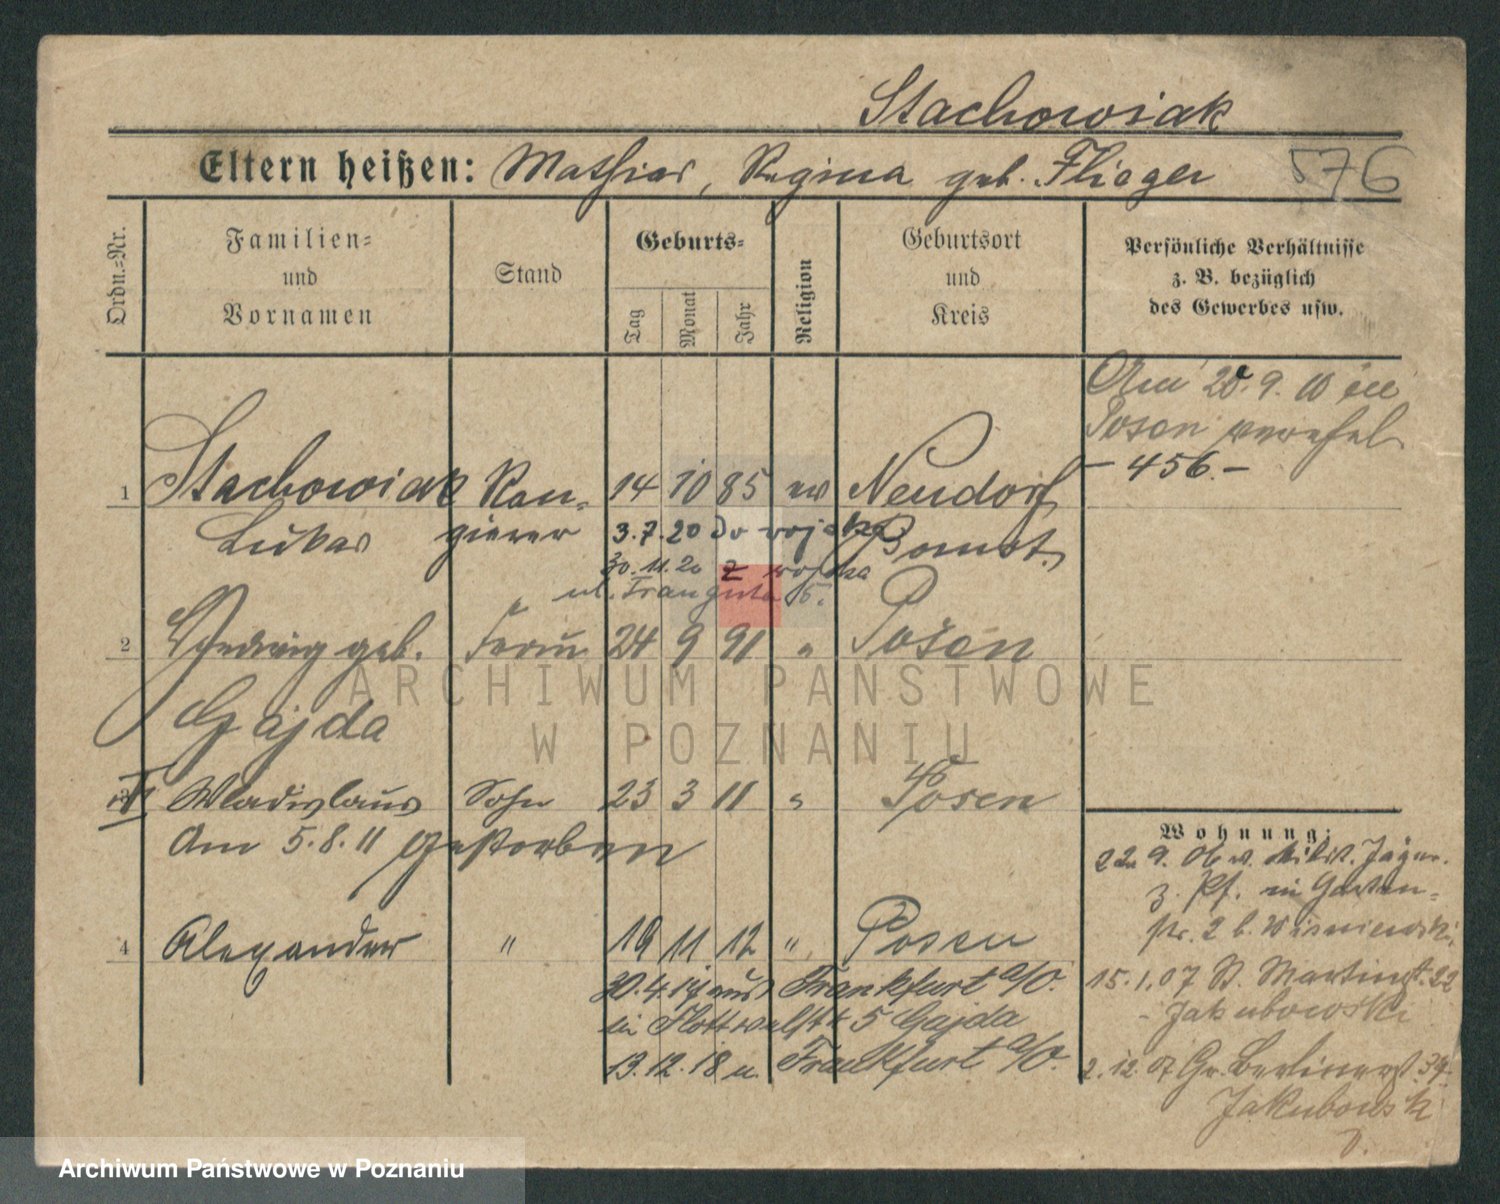 Stachowiak
Eltern heißen: Mathias, Regina geb. Flieger 576
Ordn.-Nr.
Familien-
und
Vornamen
Stand
Geburts-
Tag
Monat
Jahr
Religion
Geburtsort
und
Kreis
Persönliche Verhältnisse
z. B. bezüglich
des Gewerbes usw.
Am 20.9.10 in
Posen verehel.
- 456. -
1 Stachowiak Ran- 14 10 85 ev Neudorf
Lukas gierer 3.7.20 Do wojska Bomst.
30.11.20 z wojska
ul.
2 Hedwig geb. Frau 24 9 91 " Posen
Gajda
3 Wladislaus Sohn 23 3 11 " Posen
Am 5.8.11 gestorben
4 Alexander " 19 11 12 " Posen
30.4.14 aus Frankfurt a/O.
Flottwellstr 5 Gajda
13.12.18 u. Frankfurt a/O.
Wohnung:
22.9. Jäger.
z. Pf. in Garten-
str. 2 b. Wisniewski.
15.1.07 St. Martinst. 22
Jakubowski
2.12.07 Gr. Berlinerst. 39
Jakubowsk
ARCHIWUM PAŃSTWOWE
W POZNANIU
Archiwum Państwowe w Poznaniu